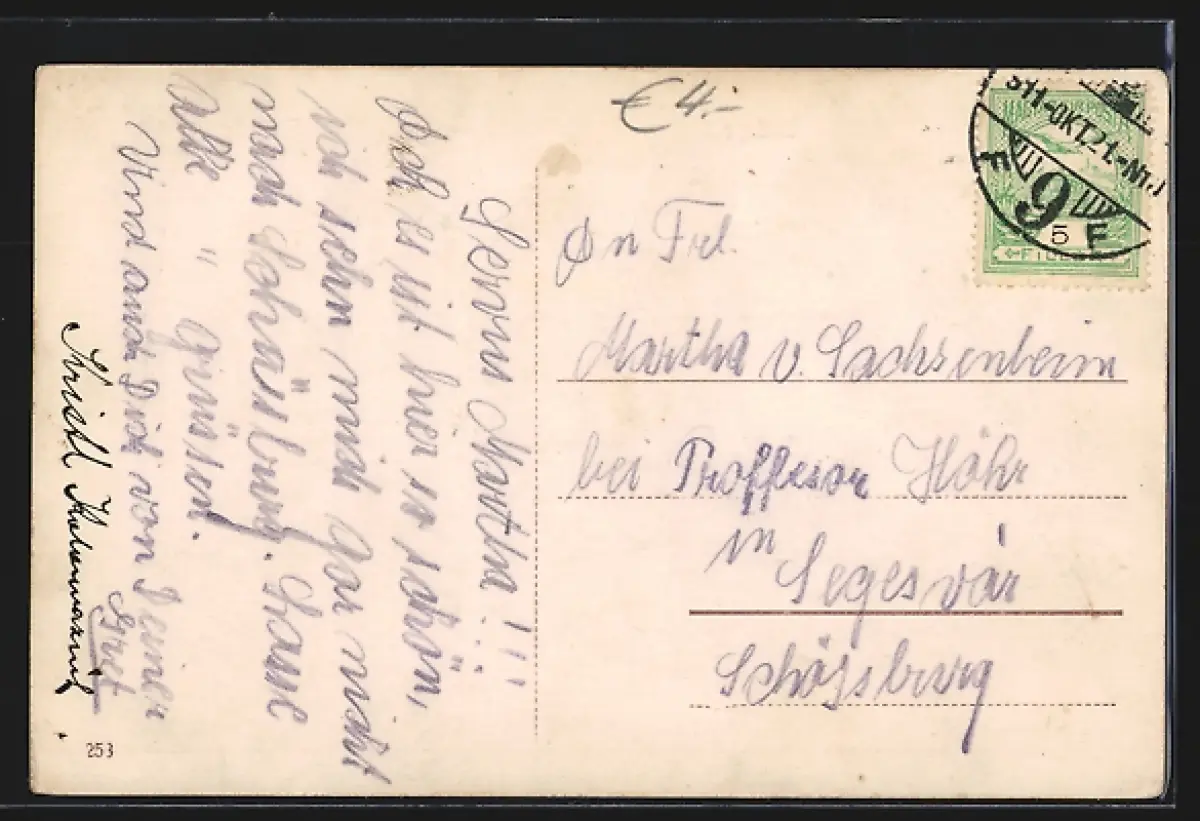 € 4.-
911-OKT.21.-N7
F 9 F
5
Servus Martha!!!
Ach es ist hier so schön,
ich sehn mich gar nicht
nach Schäsburg. Lasse
Alle " grüßen.
Und auch Dich von Deiner
Gret
Kristl
253
An Frl.
Martha v. Sachsenheim
bei Proffesor Höhr
in Segesvár
Schäßburg